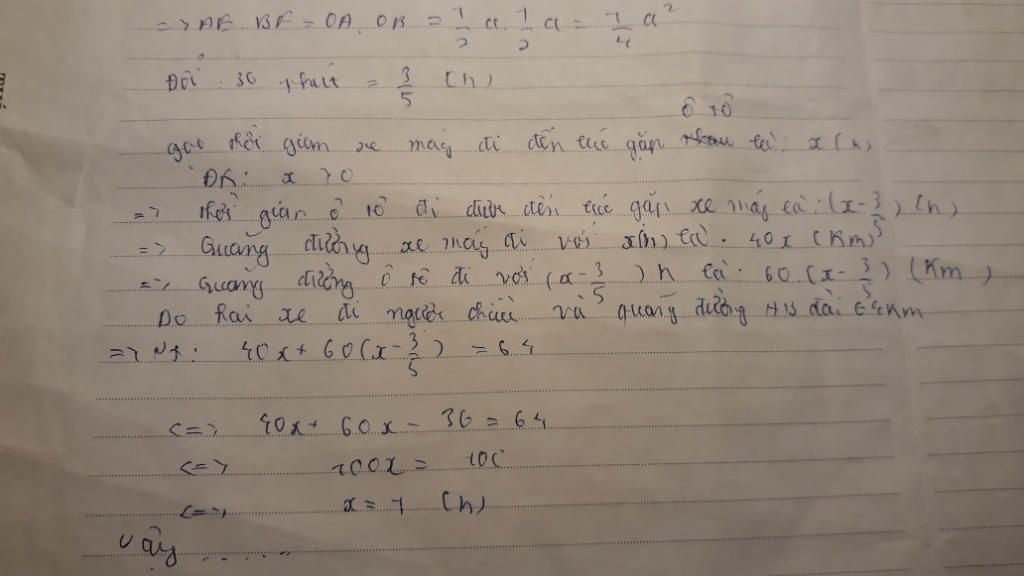 => AE . BF = OA . OB = 1/2 a . 1/2 a = 1/4 a²
Đổi : 36 phút = 3/5 (h)
ô tô
gọi thời gian xe máy đi đến lúc gặp nhau là: x (h)
ĐK: x > 0
=> thời gian ô tô đi được đến lúc gặp xe máy là: (x - 3/5) (h)
=> Quãng đường xe máy đi với x(h) là: 40x (Km)
=> Quãng đường ô tô đi với (x - 3/5) h là: 60 (x - 3/5) (Km)
Do hai xe đi ngược chiều và quãng đường AB dài 64km
=> PT: 40x + 60(x - 3/5) = 64
<=> 40x + 60x - 36 = 64
<=> 100x = 100
<=> x = 1 (h)
Vậy .......